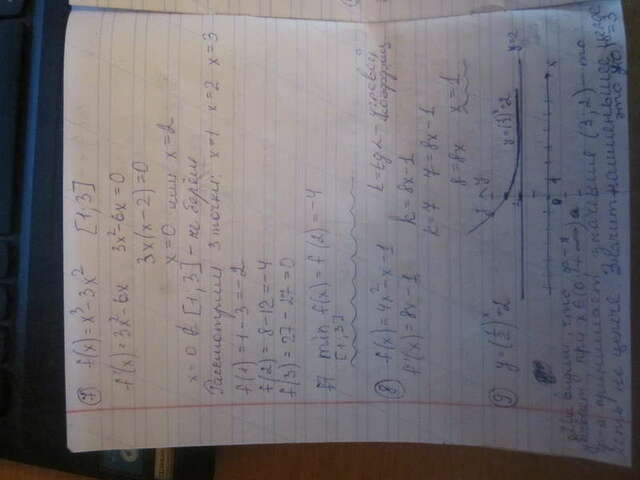 7 f(x)=x³-3x² [1,3]
f'(x)=3x²-6x 3x²-6x=0
3x(x-2)=0
x=0 или x=2
x=0 ∉ [1,3] - не берём
Рассмотрим 3 точки: x=1 x=2 x=3
f(1)=1-3=-2
f(2)=8-12=-4
f(3)=27-27=0
min f(x)=f(2)=-4
[1,3]
8 f(x)=4x²-x-1 k=tgα- угловой
коэффиц
f'(x)=8x-1 k=8x-1
k=7 7=8x-1
8=8x x=1
9 y=(1/2)^x-2 y
y=(1/2)^x-2 y=2
0 1 x
видим, что ф-я
при x∈(0;+∞), а
ф-я принимает значения (3,2)- то
есть не целое. Значит наименьшее целое
это =3